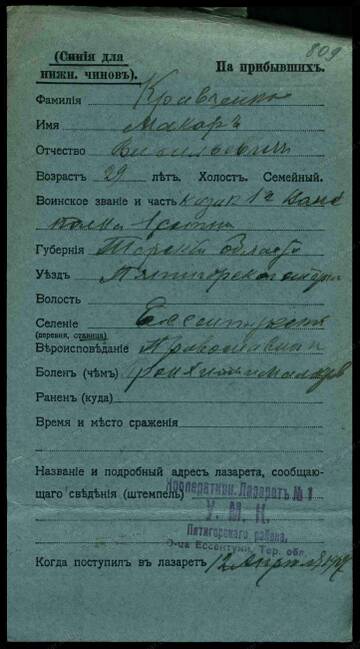 809
(Синія для
нижн. чиновъ).
На прибывшихъ.
Фамилія Кравченко
Имя Макаръ
Отчество Васильевич
Возрастъ 29 лѣтъ. Холост. Семейный.
Воинское званіе и часть казак 1й
полка 1 сотни
Губернія Терской области
Уѣздъ Пятигорского отдѣла
Волость
Селеніе Ессентукской
(деревня, станица)
Вѣроисповѣданіе Православный
Боленъ (чѣмъ)
Раненъ (куда)
Время и мѣсто сраженія
Названіе и подробный адресъ лазарета, сообщаю-
щаго свѣдѣнія (штемпель)
Кооператив. Лазаретъ № 1
У. М. К.
Пятигорскаго района.
Ессентуки, Тер. обл.
Когда поступилъ въ лазаретъ 12 Апрѣля